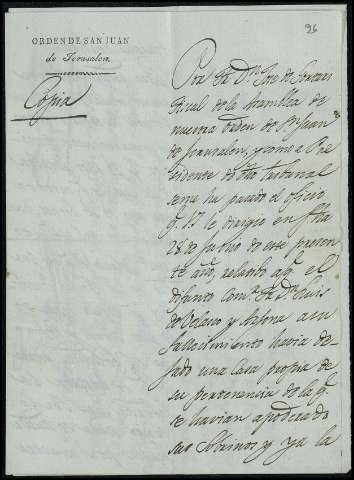 96
ORDEN DE SAN JUAN
de Jerusalen
Copia
Por Fr. Dn. Jose de
Fiscal de la Asamblea de
nuestra orden de Sn. Juan
de Jerusalen, y como a Pre
sidente de dho tribunal
se me ha pasado el oficio
q. V. le dirigio en fha
28 de Junio de este presen
te año, relativo a q. el
difunto Com.r Fr. Dn. Luis
de Velasco y a su
fallecimiento havia de
jado una Casa propia de
su pertenencia de la q.
se havian apoderado
sus Sobrinos, y ya la